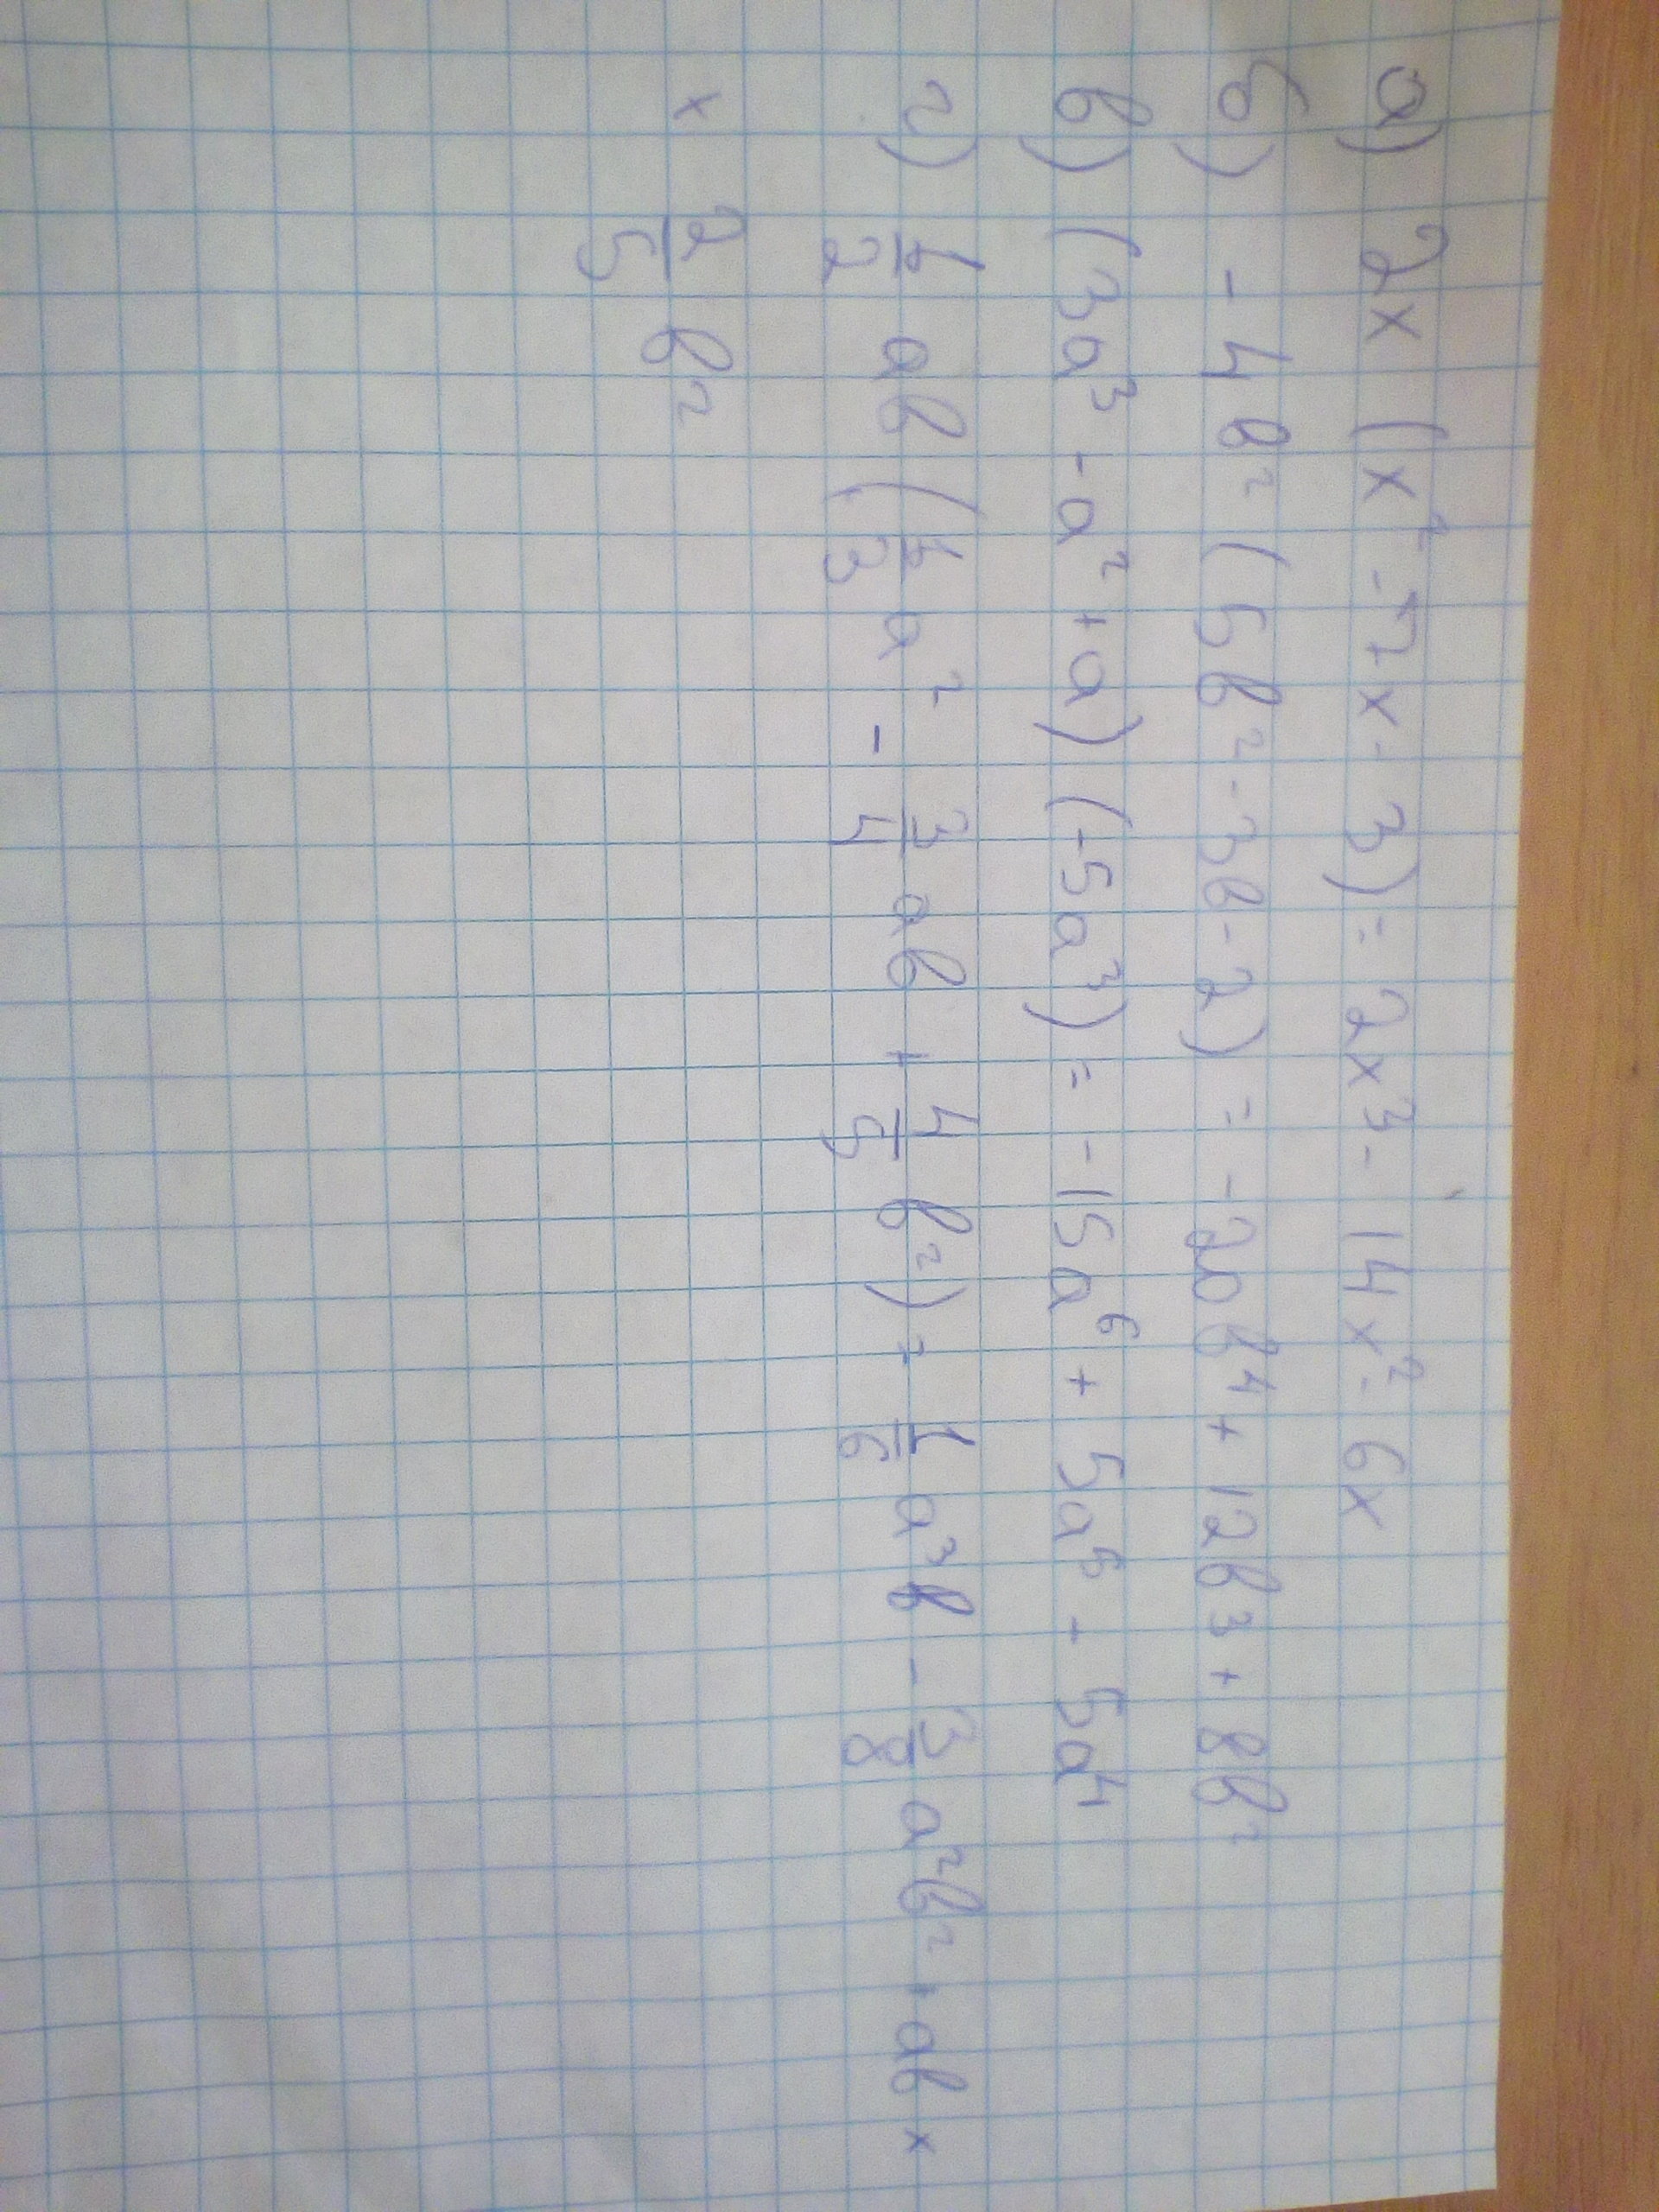 а) 2x (x² - 7x - 3) = 2x³ - 14x² - 6x
б) - 4в² (5в² - 3в - 2) = - 20в⁴ + 12в³ + 8в²
в) (3a³ - a² + a) (-5a³) = - 15a⁶ + 5a⁵ - 5a⁴
г) 1/2 aв (1/3 a² - 3/4 aв + 4/5 в²) = 1/6 a³в - 3/8 a²в² + aв ×
× 2/5 в²